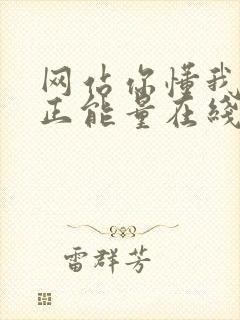 网站你懂我
正能量在线
雷群芳